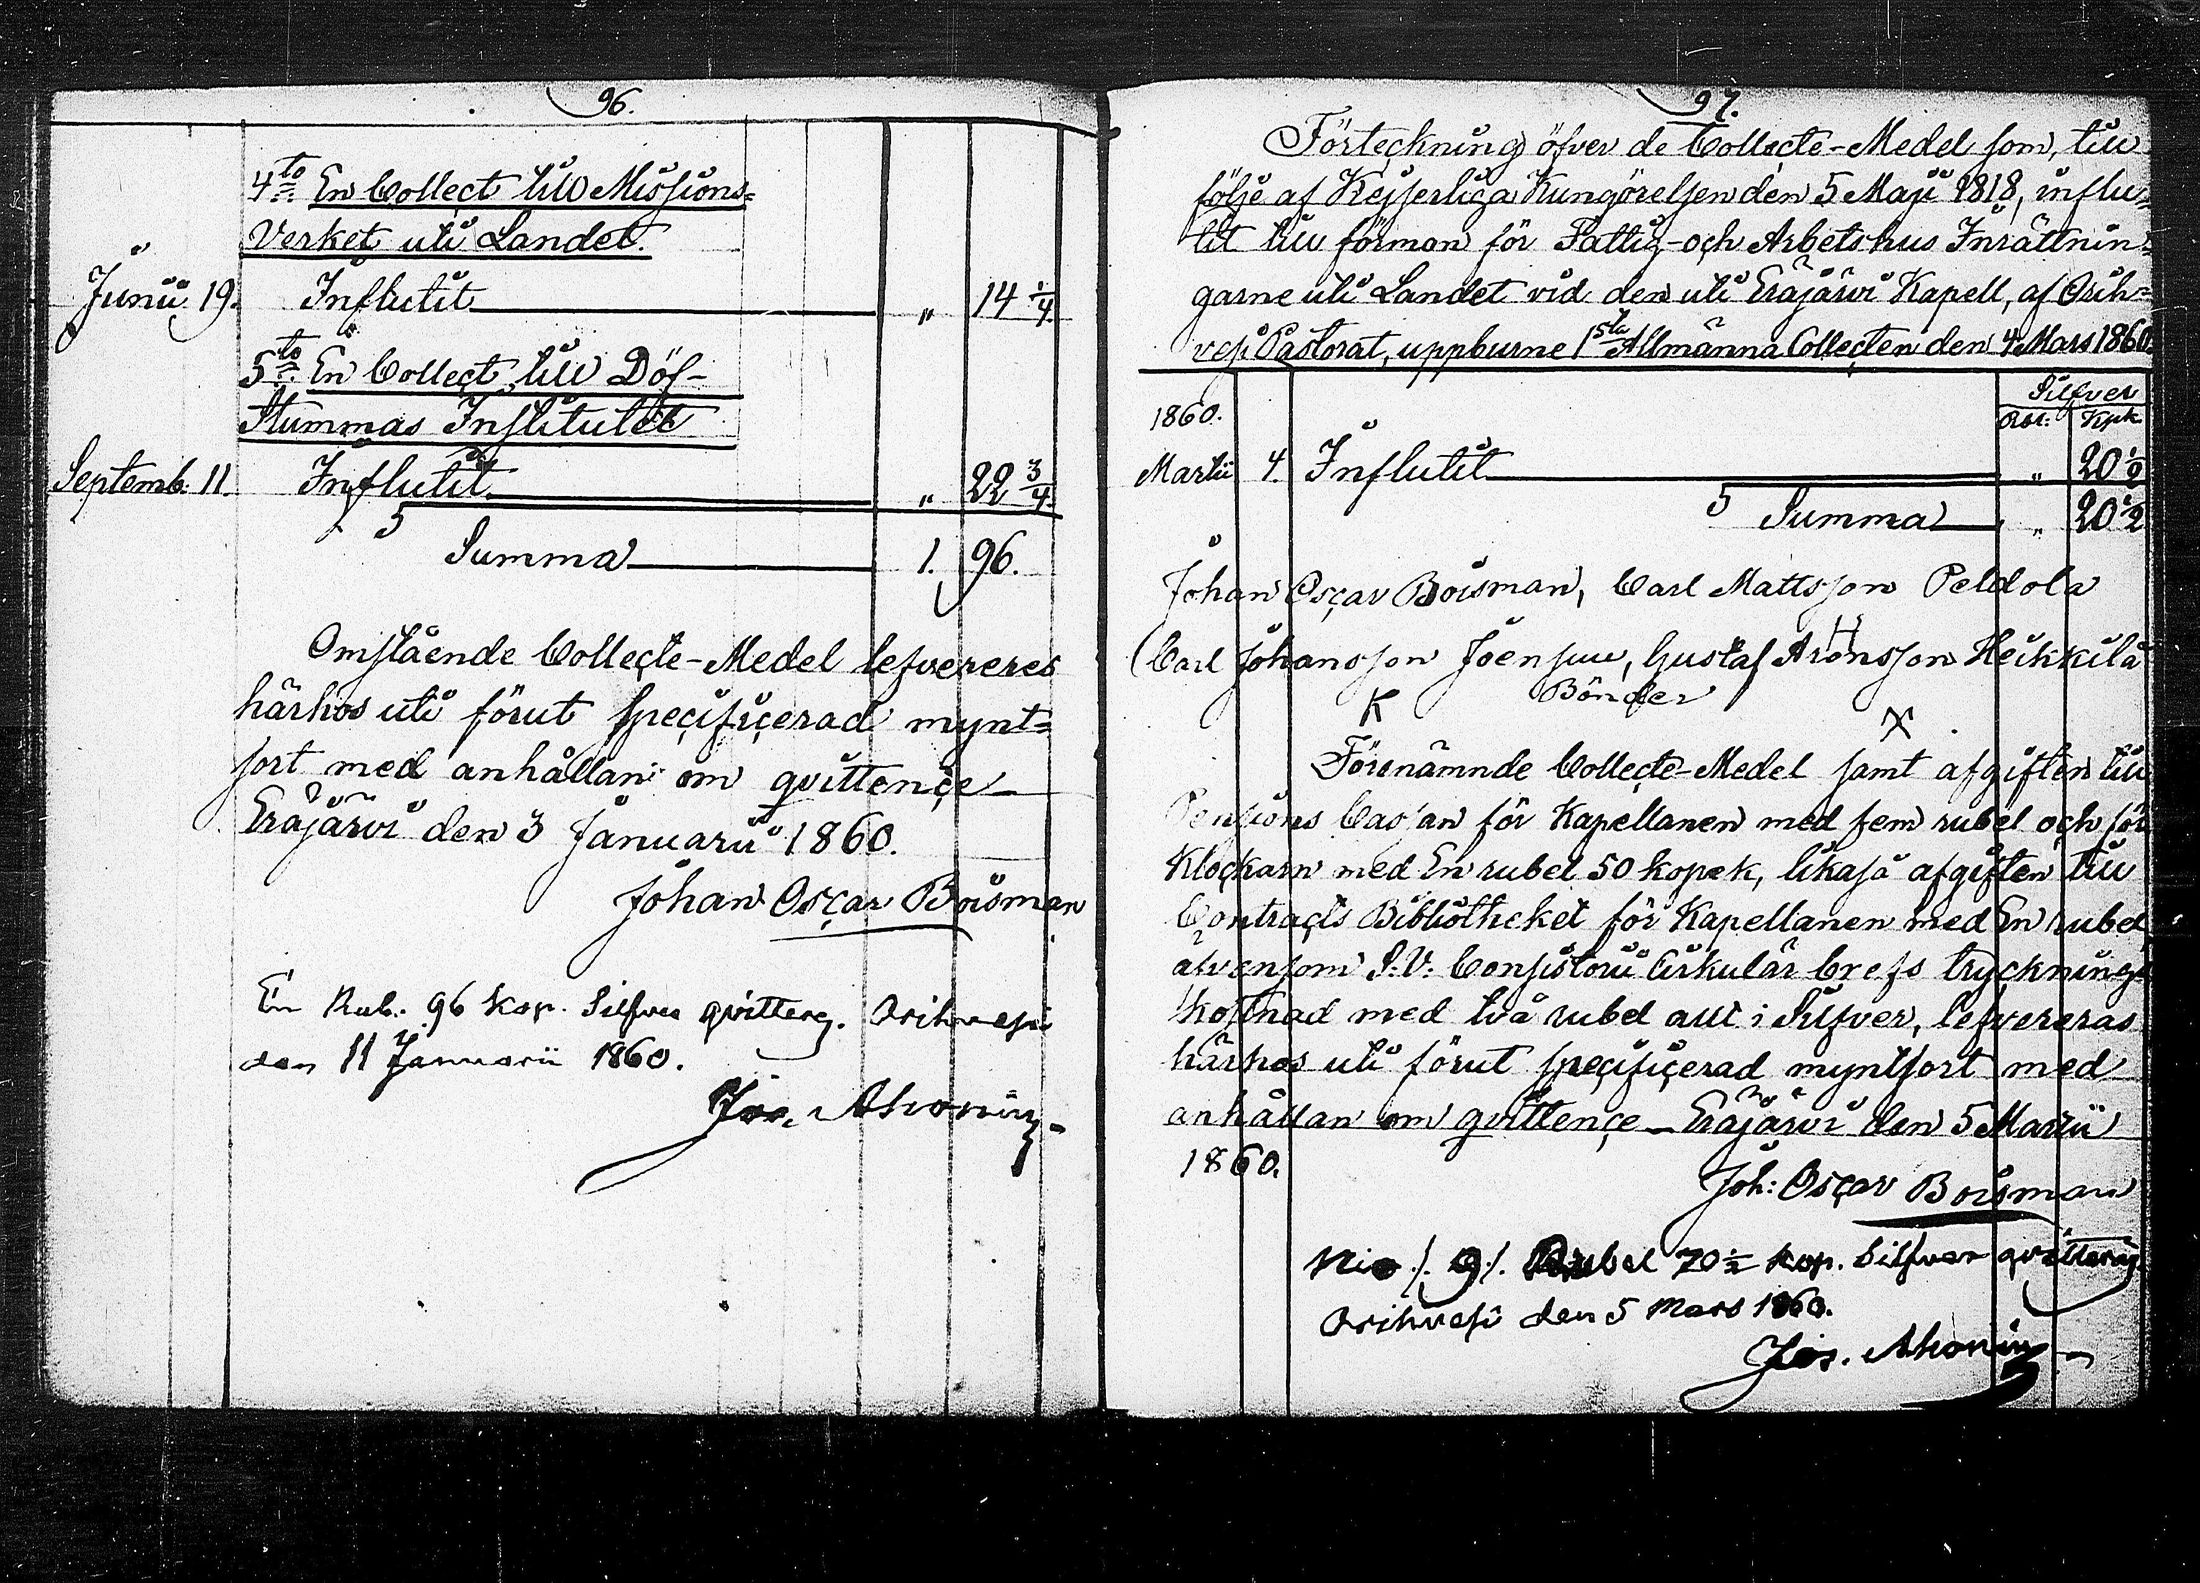 96.
4to En Collect till Missions=
Verket uti Landet.
Junii 19. Influtit " 14 1/4.
5to En Collect till Döf-
Stummas Institutet
Septemb. 11. Influtit " 22 3/4.
Summa 1. 96.
Omstående Collecte-Medel lefvereres
härhos uti förut specificerad mynt=
sort med anhållan om qvittence
Eräjärvi den 3 Januarii 1860.
Johan Oscar Boisman
En Rub. 96 kop. Silfver qvitteras. Orihvesi
den 11 Januarii 1860.
Jos. Ahonius
97.
Förteckning öfver de Collecte-Medel som, till
följe af Kejserliga Kungörelsen den 5 Maji 1818, influ=
tit till förmon för Fattig- och Arbetshus Inrättnin=
garne uti Landet vid den uti Eräjärvi Kapell, af Orih=
vesi Pastorat, uppburne 1sta Allmänna Collecten den 4 Mars 1860.
1860. Silfver
Rbl: Kpk
Martii 4. Influtit " 20 1/2
Summa " 20 1/2
Johan Oscar Boisman, Carl Mattsson Peldola
H
Carl Johansson Joensuu, Gustaf Aronsson Heikkilä
K Bönder X
Förenämnde Collecte-Medel samt afgiften till
Pensions Cassan för Kapellanen med fem rubel och för
Klockarn med En rubel 50 kopek, likaså afgiften till
Contracts Bibliotheket för Kapellanen med En rubel
äfvensom S.V. Consistorii Cirkulär brefs trycknings
kostnad med två rubel allt i Silfver, lefvereras
härhos uti förut specificerad myntsort med
anhållan om qvittence - Eräjärvi den 5 Martii
1860.
Joh: Oscar Boisman
Nio /. 9 /. Rubel 70 1/2 kop. Silfver qvitteras
Orihvesi den 5 Mars 1860.
Jos. Ahonius